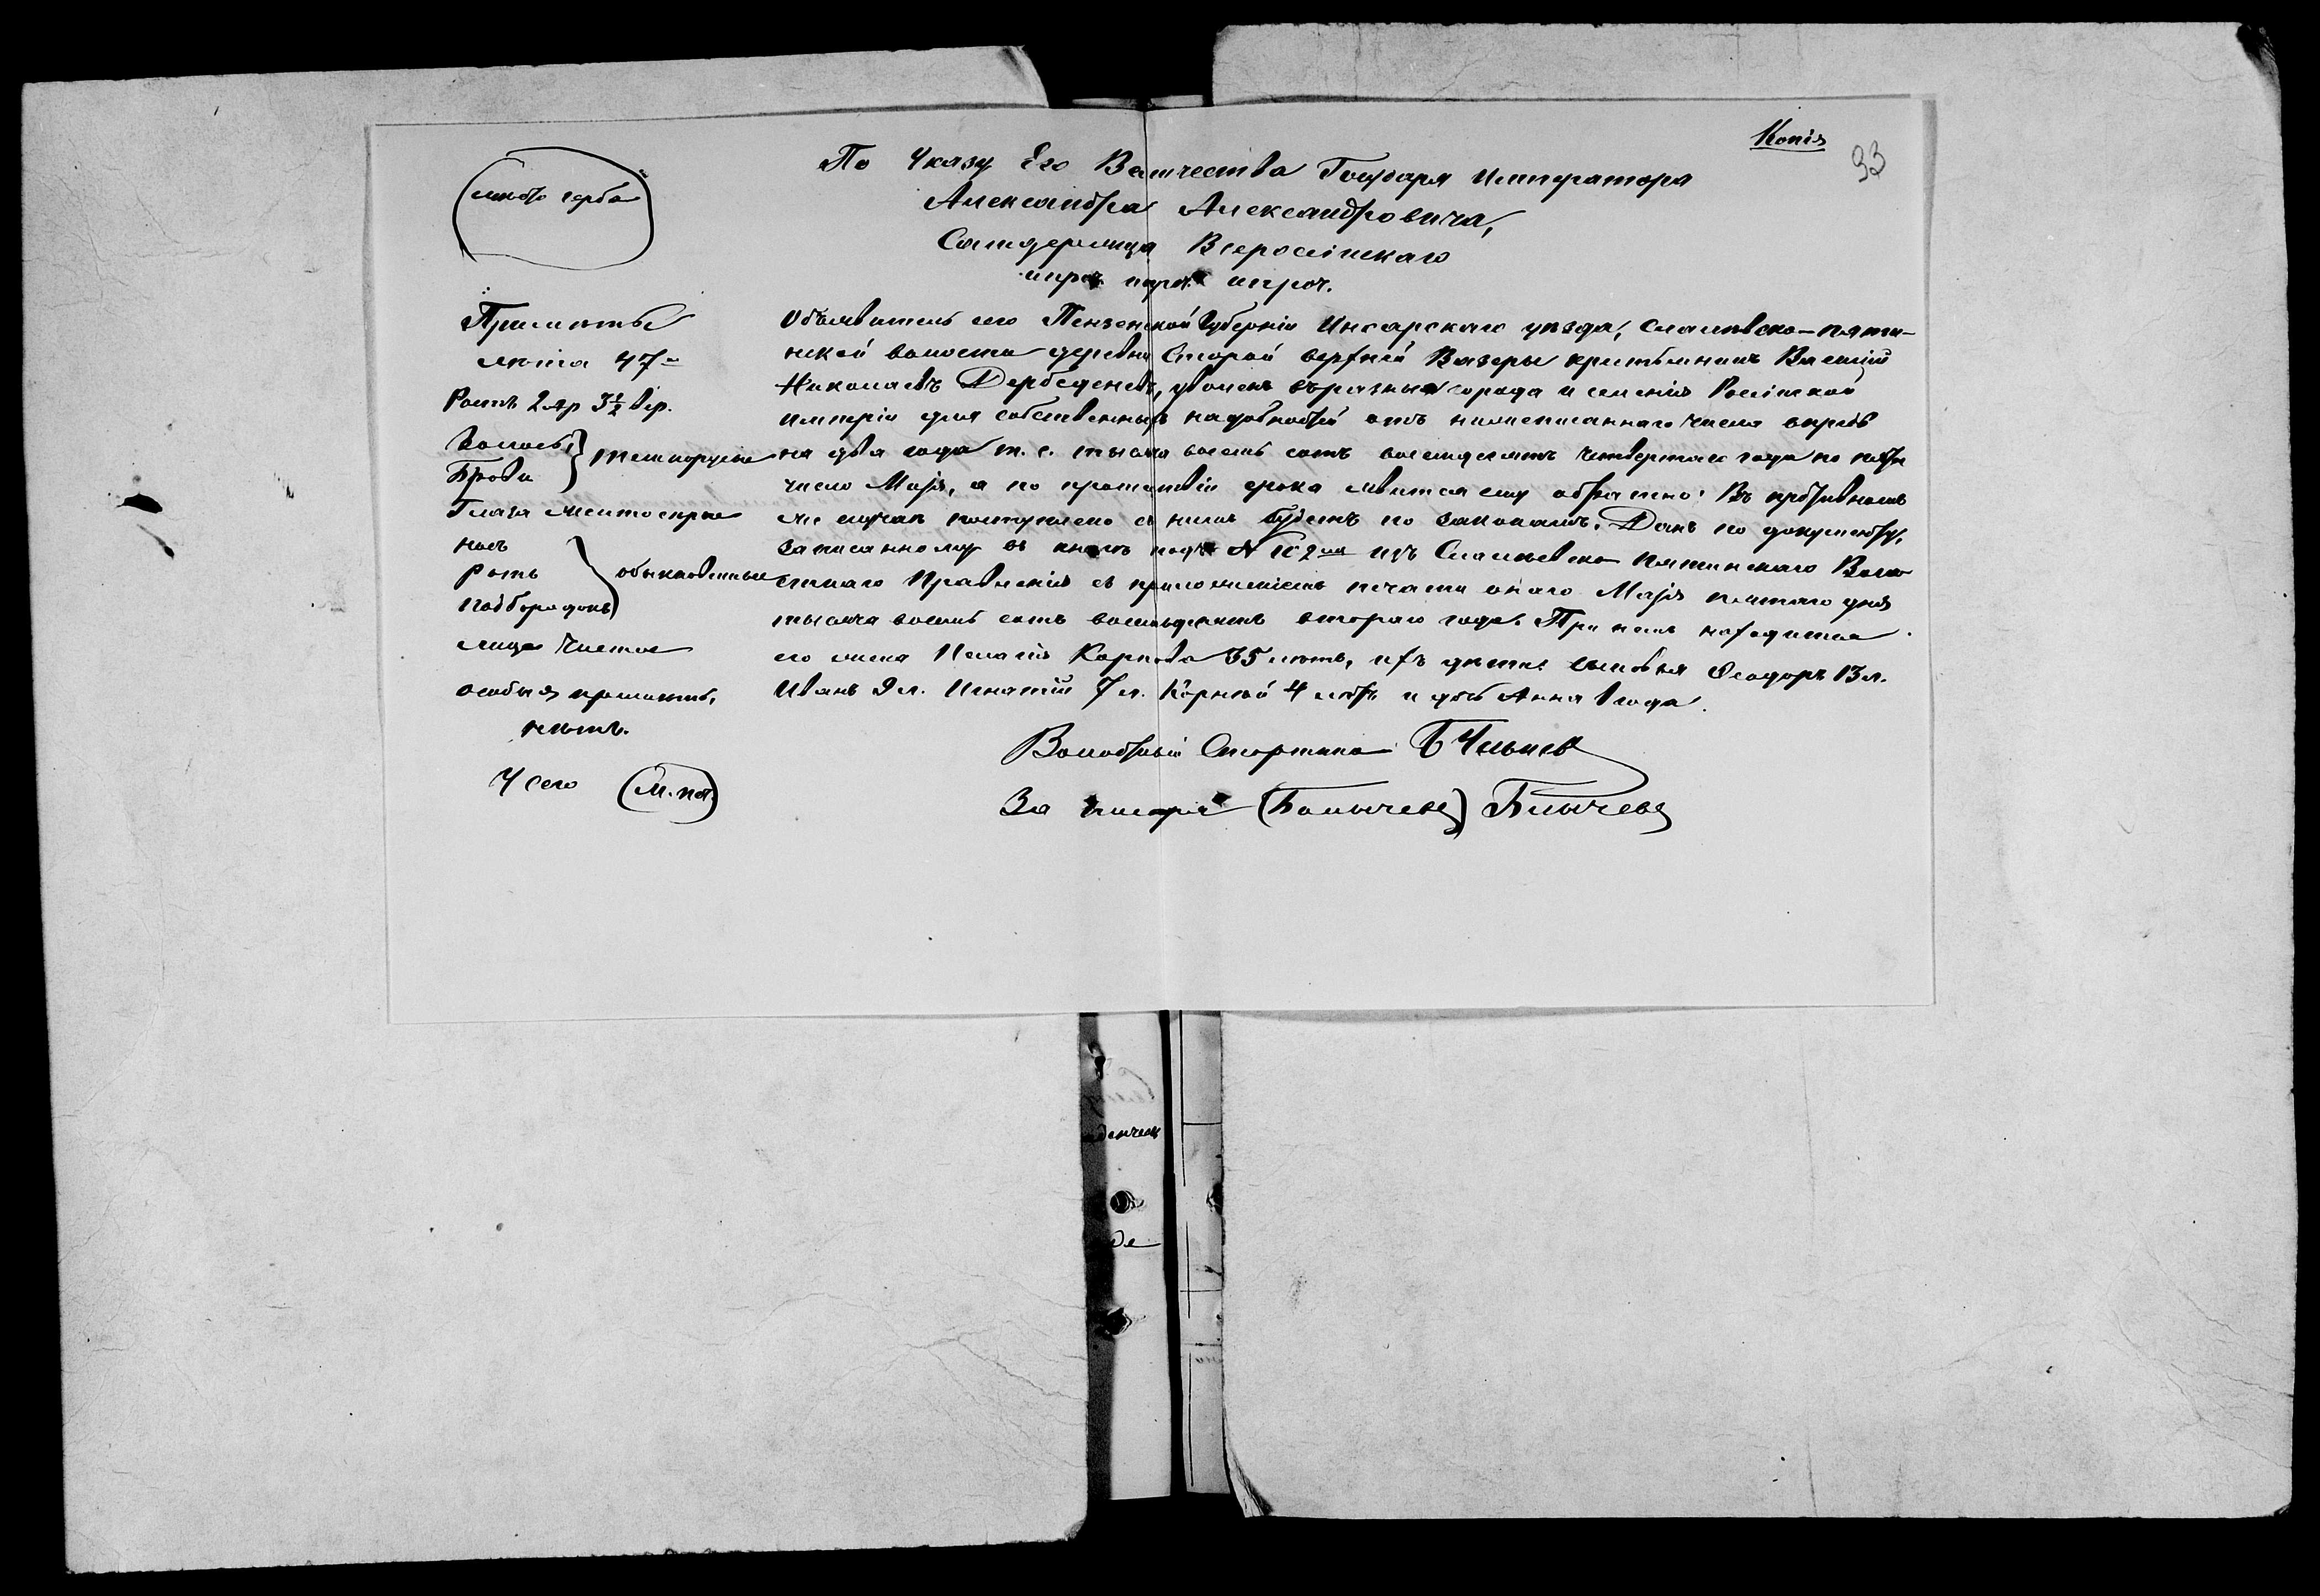 Копія
33
мѣсто герба
По Указу Его Величества Государя Императора
Александра Александровича,
Самодержца Всероссійскаго
и проч. и проч. и проч.
Примѣты
лѣта 47
Ростъ 2 ар 3½ вер.
Волосы
Брови } темнорусые
Глаза желтосерые
носъ
ротъ } обыкновенные
подбородокъ
лице чистое
особыя примѣты,
нѣтъ.
У сего (М. печ.)
Объявитель сего Пензенской Губерніи Инсарскаго уѣзда, Слаимовско-пяти-
нской волости деревни Старой верхней Вязеры крестьянинъ Василій
Николаевъ Дербеденевъ, уволенъ въ разные города и селенія Россійской
имперіи для собственныхъ надобностей отъ нижеписаннаго числа впредь
на два года т. е. тысяча восемь сотъ восемьдесятъ четвертаго года по пятое
число Мaiя, а по прошествіи срока явиться ему обратно. Въ противномъ
же случаѣ поступлено съ нимъ будетъ по законамъ. Данъ по документу,
записанному въ книгѣ подъ № 102 изъ Пятинскаго Воло
стнаго Правленія съ приложеніемъ печати онаго Маія пятаго дня
тысяча восемь сотъ восемьдесятъ втораго года. При немъ находится
его жена Пелагія Карпова 35 лѣтъ, ихъ дѣти: сыновья Феодоръ 13 л.
Иванъ 9 л. Игнатій 7 л. Корнѣй 4 лѣтъ и дочь Анна 1 года.
Волостный Старшина
За писаря